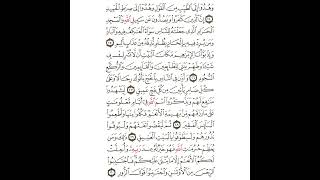 وَهُدُوٓا۟ إِلَى ٱلطَّيِّبِ مِنَ ٱلْقَوْلِ وَهُدُوٓا۟ إِلَىٰ صِرَٰطِ ٱلْحَمِيدِ
۝٢٤ إِنَّ ٱلَّذِينَ كَفَرُوا۟ وَيَصُدُّونَ عَن سَبِيلِ ٱللَّهِ وَٱلْمَسْجِدِ
ٱلْحَرَامِ ٱلَّذِى جَعَلْنَٰهُ لِلنَّاسِ سَوَآءً ٱلْعَٰكِفُ فِيهِ وَٱلْبَادِ
وَمَن يُرِدْ فِيهِ بِإِلْحَادٍۭ بِظُلْمٍ نُّذِقْهُ مِنْ عَذَابٍ أَلِيمٍ ۝٢٥
وَإِذْ بَوَّأْنَا لِإِبْرَٰهِيمَ مَكَانَ ٱلْبَيْتِ أَن لَّا تُشْرِكْ بِى شَيْـًٔا
وَطَهِّرْ بَيْتِىَ لِلطَّآئِفِينَ وَٱلْقَآئِمِينَ وَٱلرُّكَّعِ
ٱلسُّجُودِ ۝٢٦ وَأَذِّن فِى ٱلنَّاسِ بِٱلْحَجِّ يَأْتُوكَ رِجَالًا وَعَلَىٰ
كُلِّ ضَامِرٍ يَأْتِينَ مِن كُلِّ فَجٍّ عَمِيقٍ ۝٢٧ لِّيَشْهَدُوا۟
مَنَٰفِعَ لَهُمْ وَيَذْكُرُوا۟ ٱسْمَ ٱللَّهِ فِىٓ أَيَّامٍ مَّعْلُومَٰتٍ
عَلَىٰ مَا رَزَقَهُم مِّنۢ بَهِيمَةِ ٱلْأَنْعَٰمِ فَكُلُوا۟ مِنْهَا وَأَطْعِمُوا۟
ٱلْبَآئِسَ ٱلْفَقِيرَ ۝٢٨ ثُمَّ لْيَقْضُوا۟ تَفَثَهُمْ وَلْيُوفُوا۟
نُذُورَهُمْ وَلْيَطَّوَّفُوا۟ بِٱلْبَيْتِ ٱلْعَتِيقِ ۝٢٩ ذَٰلِكَ وَمَن
يُعَظِّمْ حُرُمَٰتِ ٱللَّهِ فَهُوَ خَيْرٌ لَّهُۥ عِندَ رَبِّهِۦ وَأُحِلَّتْ
لَكُمُ ٱلْأَنْعَٰمُ إِلَّا مَا يُتْلَىٰ عَلَيْكُمْ فَٱجْتَنِبُوا۟
ٱلرِّجْسَ مِنَ ٱلْأَوْثَٰنِ وَٱجْتَنِبُوا۟ قَوْلَ ٱلزُّورِ ۝٣٠